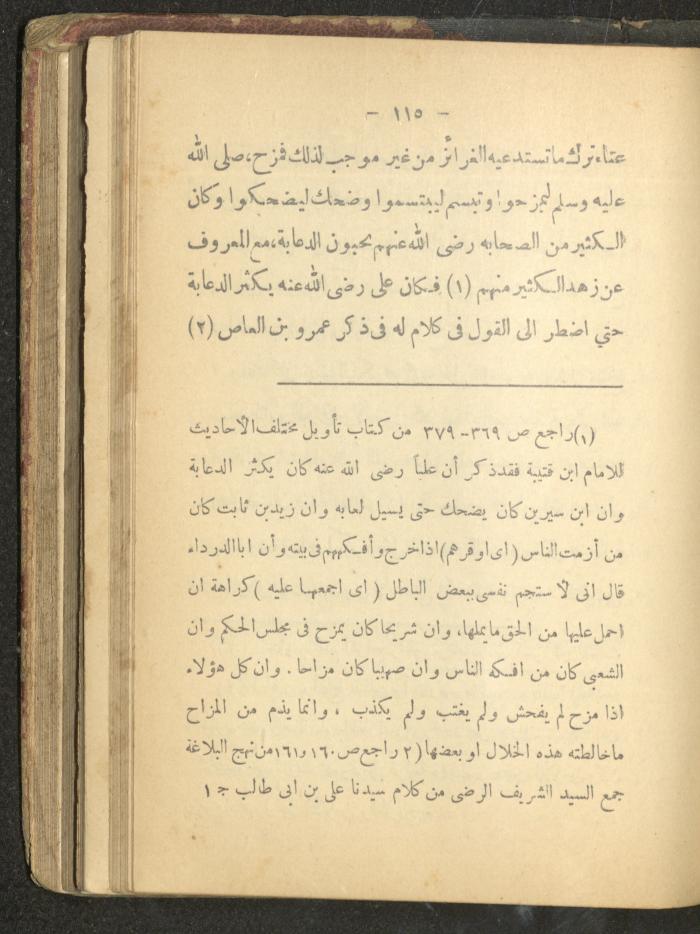 - ١١٥ -
عناء ترك ما تستدعيه الغرائز من غير موجب لذلك فمزح، صلى الله
عليه وسلم ليمزحوا وتبسم ليبتسموا وضحك ليضحكوا وكان
الكثير من الصحابه رضى الله عنهم يحبون الدعابة، مع المعروف
عن زهد الكثير منهم (١) فكان على رضى الله عنه يكثر الدعابة
حتي اضطر الى القول فى كلام له فى ذكر عمرو بن العاص (٢)
(١) راجع ص ٣٦٩ - ٣٧٩ من كتاب تأويل مختلف الأحاديث
للامام ابن قتيبة فقد ذكر أن علياً رضى الله عنه كان يكثر الدعابة
وان ابن سيرين كان يضحك حتى يسيل لعابه وان زيد بن ثابت كان
من أزمت الناس (اى اوقرهم) اذا خرج وأفكههم فى بيته وأن ابا الدرداء
قال انى لأستجم نفسى ببعض الباطل (اى اجمعها عليه) كراهة ان
احمل عليها من الحق ما يملها، وان شريحا كان يمزح فى مجلس الحكم وان
الشعبى كان من افكه الناس وان صهيبا كان مزاحا. وان كل هؤلاء
اذا مزح لم يفحش ولم يغتب ولم يكذب، وانما يذم من المزاح
ما خالطته هذه الخلال او بعضها (٢ راجع ص ١٦٠ و ١٦١ من نهج البلاغة
جمع السيد الشريف الرضى من كلام سيدنا على بن ابى طالب ج ١